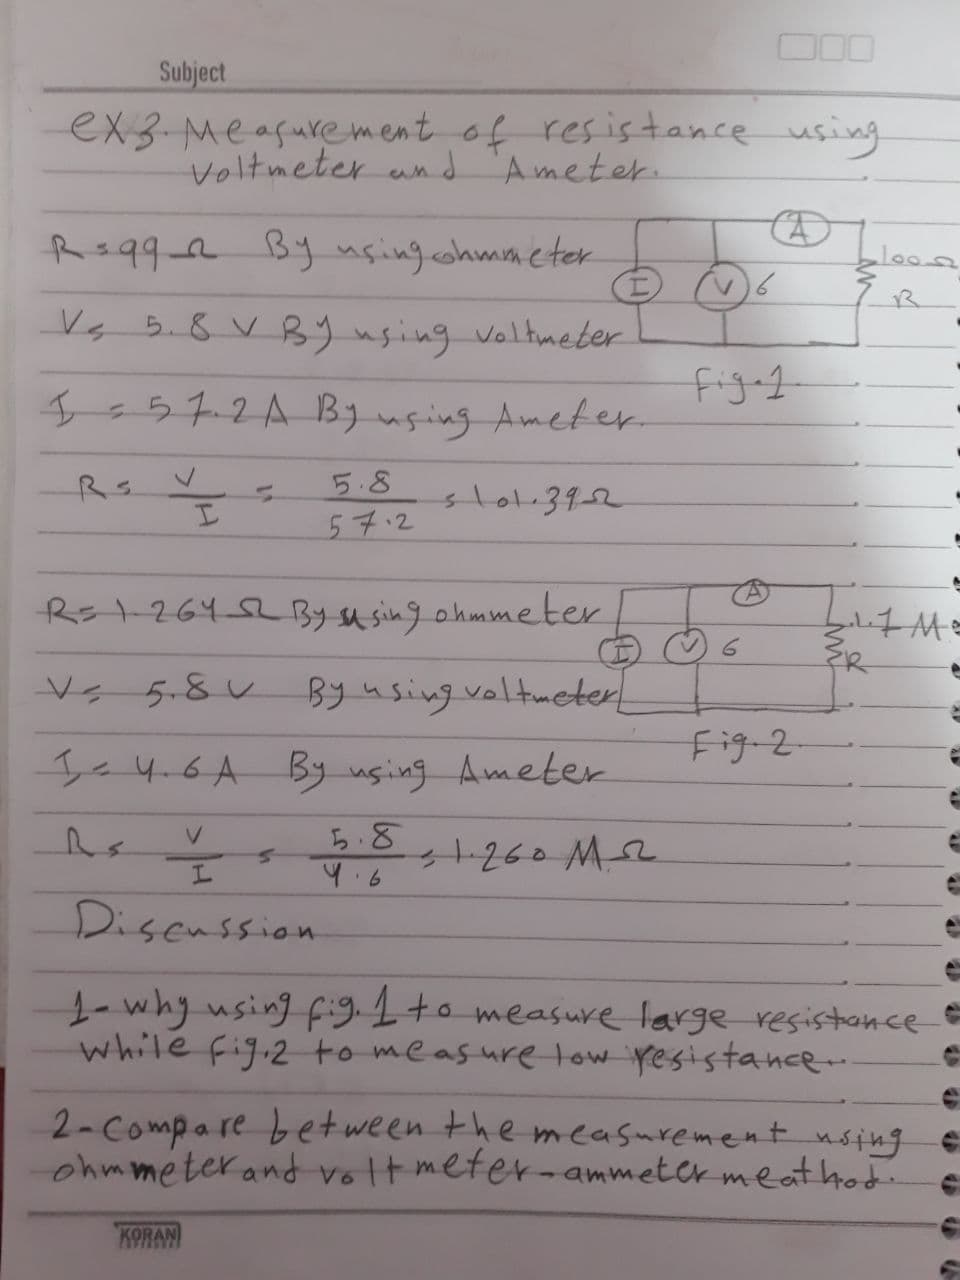 Subject
ex3. Measurement of resistance using
Voltmeter and Ameter.
R = 99 Ω By using ohmmeter
A
100 Ω
I
V
6
R
V = 5.8 V By using voltmeter
Fig.1
I = 57.2 A By using Ameter.
R = V/I = 5.8/57.2 = 101.39 Ω
R = 1.264 Ω By using ohmmeter
A
I
V
6
R
V = 5.8 V By using voltmeter
Fig.2
I = 4.6 A By using Ameter
R = V/I = 5.8/4.6 = 1.260 MΩ
Discussion
1- why using fig.1 to measure large resistance
while fig.2 to measure low resistance..
2- Compare between the measurement using
ohmmeter and voltmeter-ammeter meathod.
KORAN